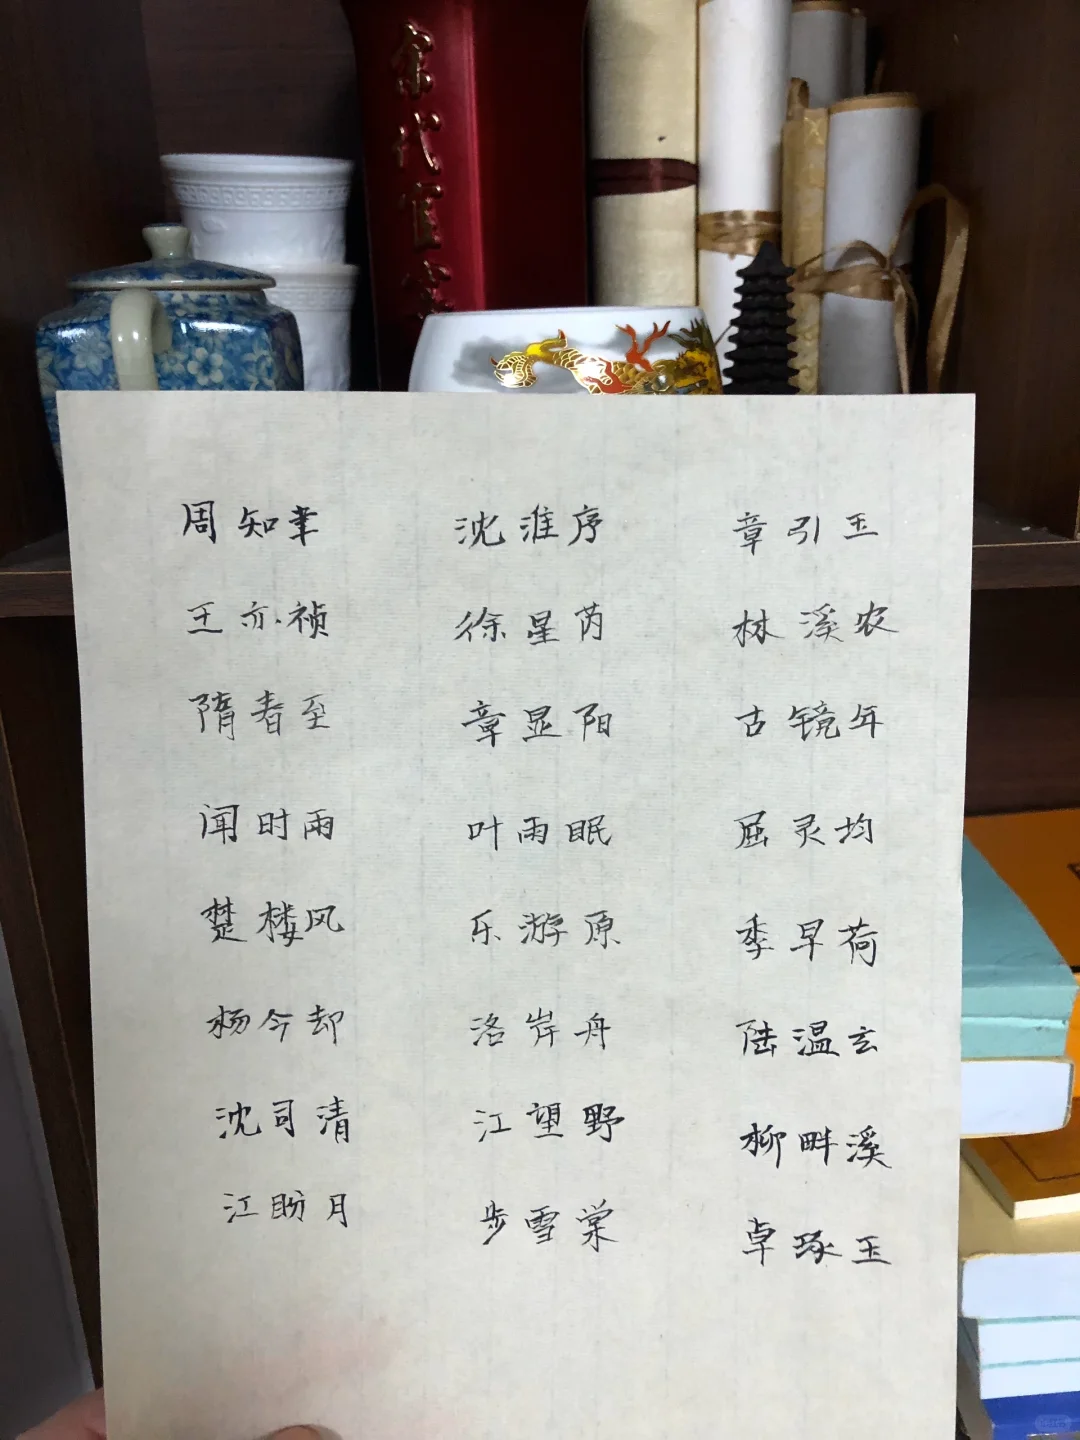 宋代官窑
周知聿 沈淮序 章引玉
王亦祯 徐星芮 林溪农
隋春至 章显阳 古镜年
闻时雨 叶雨眠 屈灵均
楚楼风 乐游原 季早荷
杨今却 洛岸舟 陆温玄
沈司清 江望野 柳畔溪
江盼月 步雪棠 卓琢玉